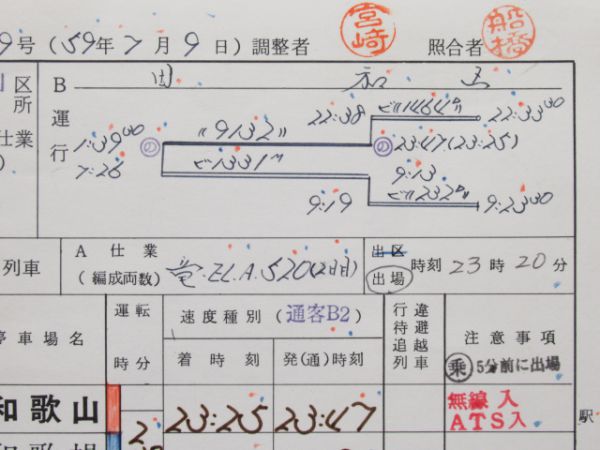 9号 (59年7月9日) 調整者 宮崎 照合者 船橋
区所 B
仕業 運行
22:38 〃1464〃 22:33 30
1:39 00 〃9132〃 の 23:47 (23:25)
7:26 の 〃1331〃 9:13
9:19 〃232〃 9:23 30
列車 A 仕業 (編成両数) 出区 出場 時刻 23時20分
停車場名 運転時分 速度種別 (通客B2) 行違待避追越列車 注意事項
着時刻 発(通)時刻 乗 5分前に出場
和歌山 23:25 23:47 無線入
ATS入 駅
2